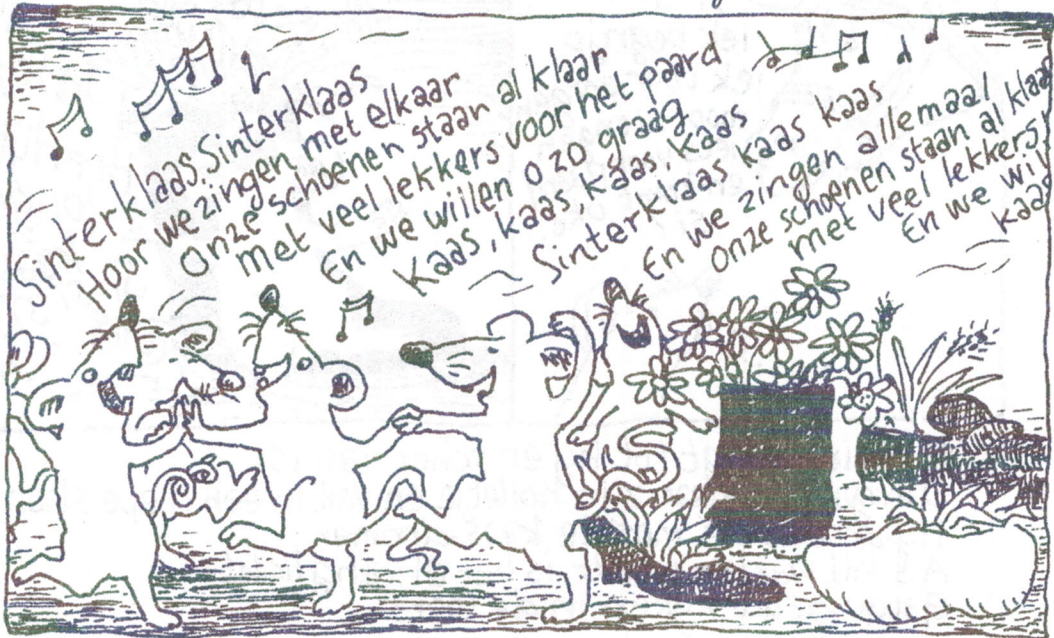 Sinterklaas, Sinterklaas
Hoor we zingen met elkaar
Onze schoenen staar al klaar
met veel lekkers voor het paard
En we willen o zo graag
Kaas, kaas, kaas, kaas
Sinterklaas kaas kaas
En we zingen allemaal
onze schoenen staan al klaar
met veel lekkers
En we wil
kaas